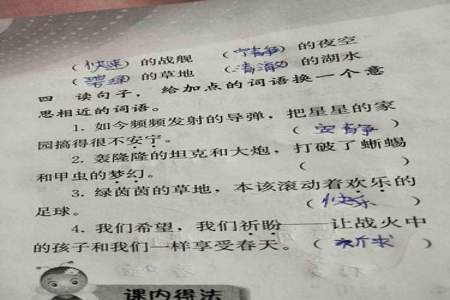 (快速)的战舰 (宁静)的夜空
(碧绿)的草地 (清澈)的湖水
四 读句子,给加点的词语换一个意
思相近的词语。
1. 如今频频发射的导弹,把星星的家
园搞得很不安宁。 (安静)
2. 轰隆隆的坦克和大炮,打破了蜥蜴
和甲虫的梦幻。 ( )
3. 绿茵茵的草地,本该滚动着欢乐的
足球。 (快乐)
4. 我们希望,我们祈盼——让战火中
的孩子和我们一样享受春天。(祈求)
课内得法